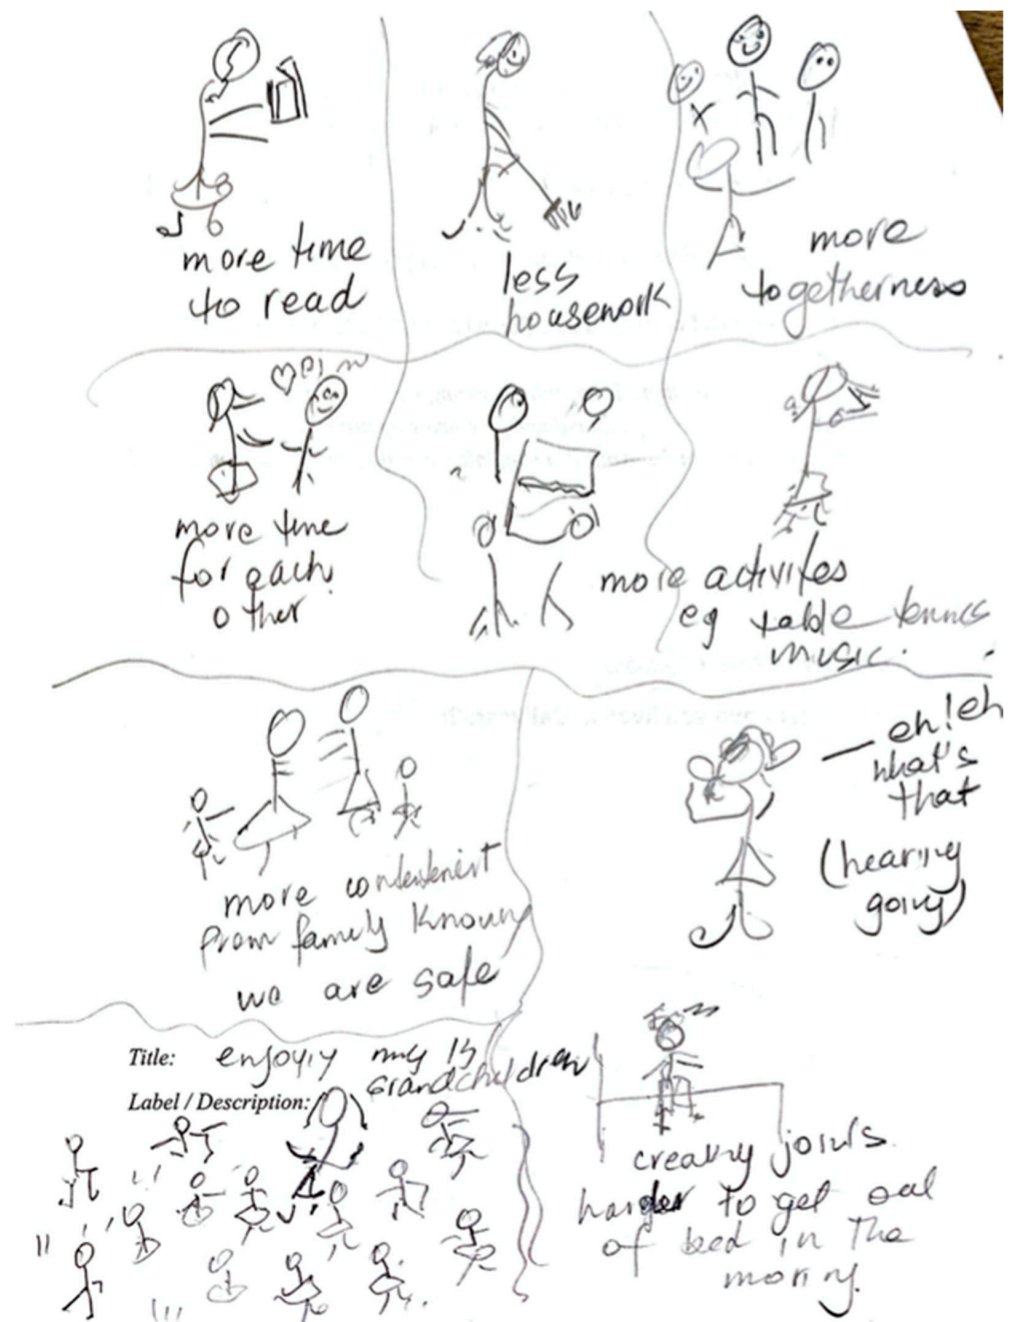 more time
to read
less
housework
more
togetherness
more time
for each
other
more activites
eg table tennis
music.
more
from family knowing
we are safe
eh! eh
what's
that
(hearing
going)
Title: enjoying my 13
grandchildren
Label / Description:
creaky joints
harder to get out
of bed in the
morning.